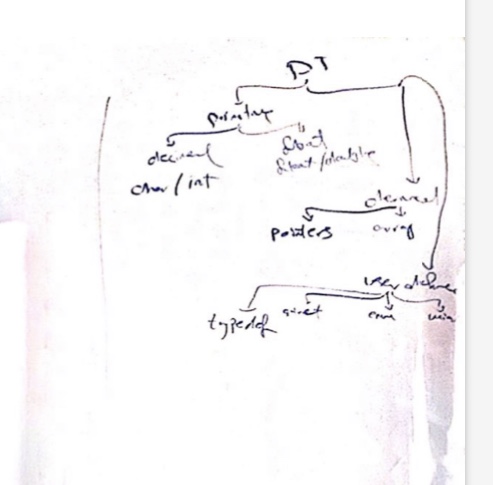 DT
primitive
decimal
float
char / int
float / double
derived
pointers
array
user define
typedef
struct
enum
union